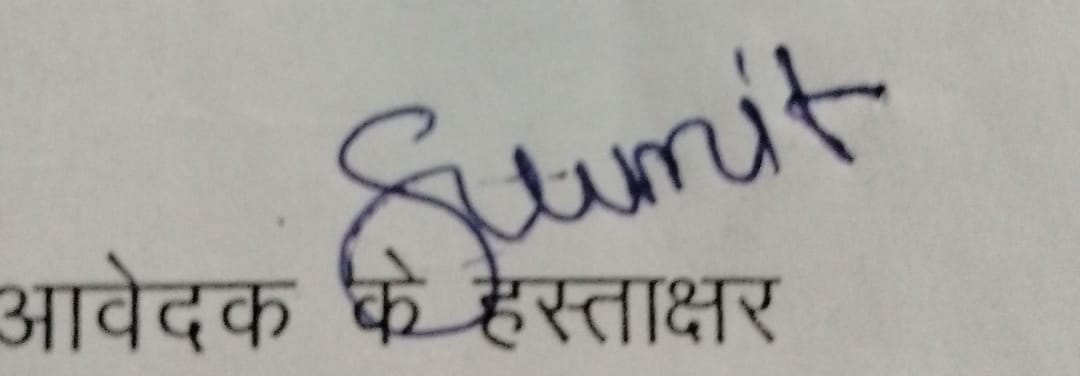 Sumit
आवेदक के हस्ताक्षर